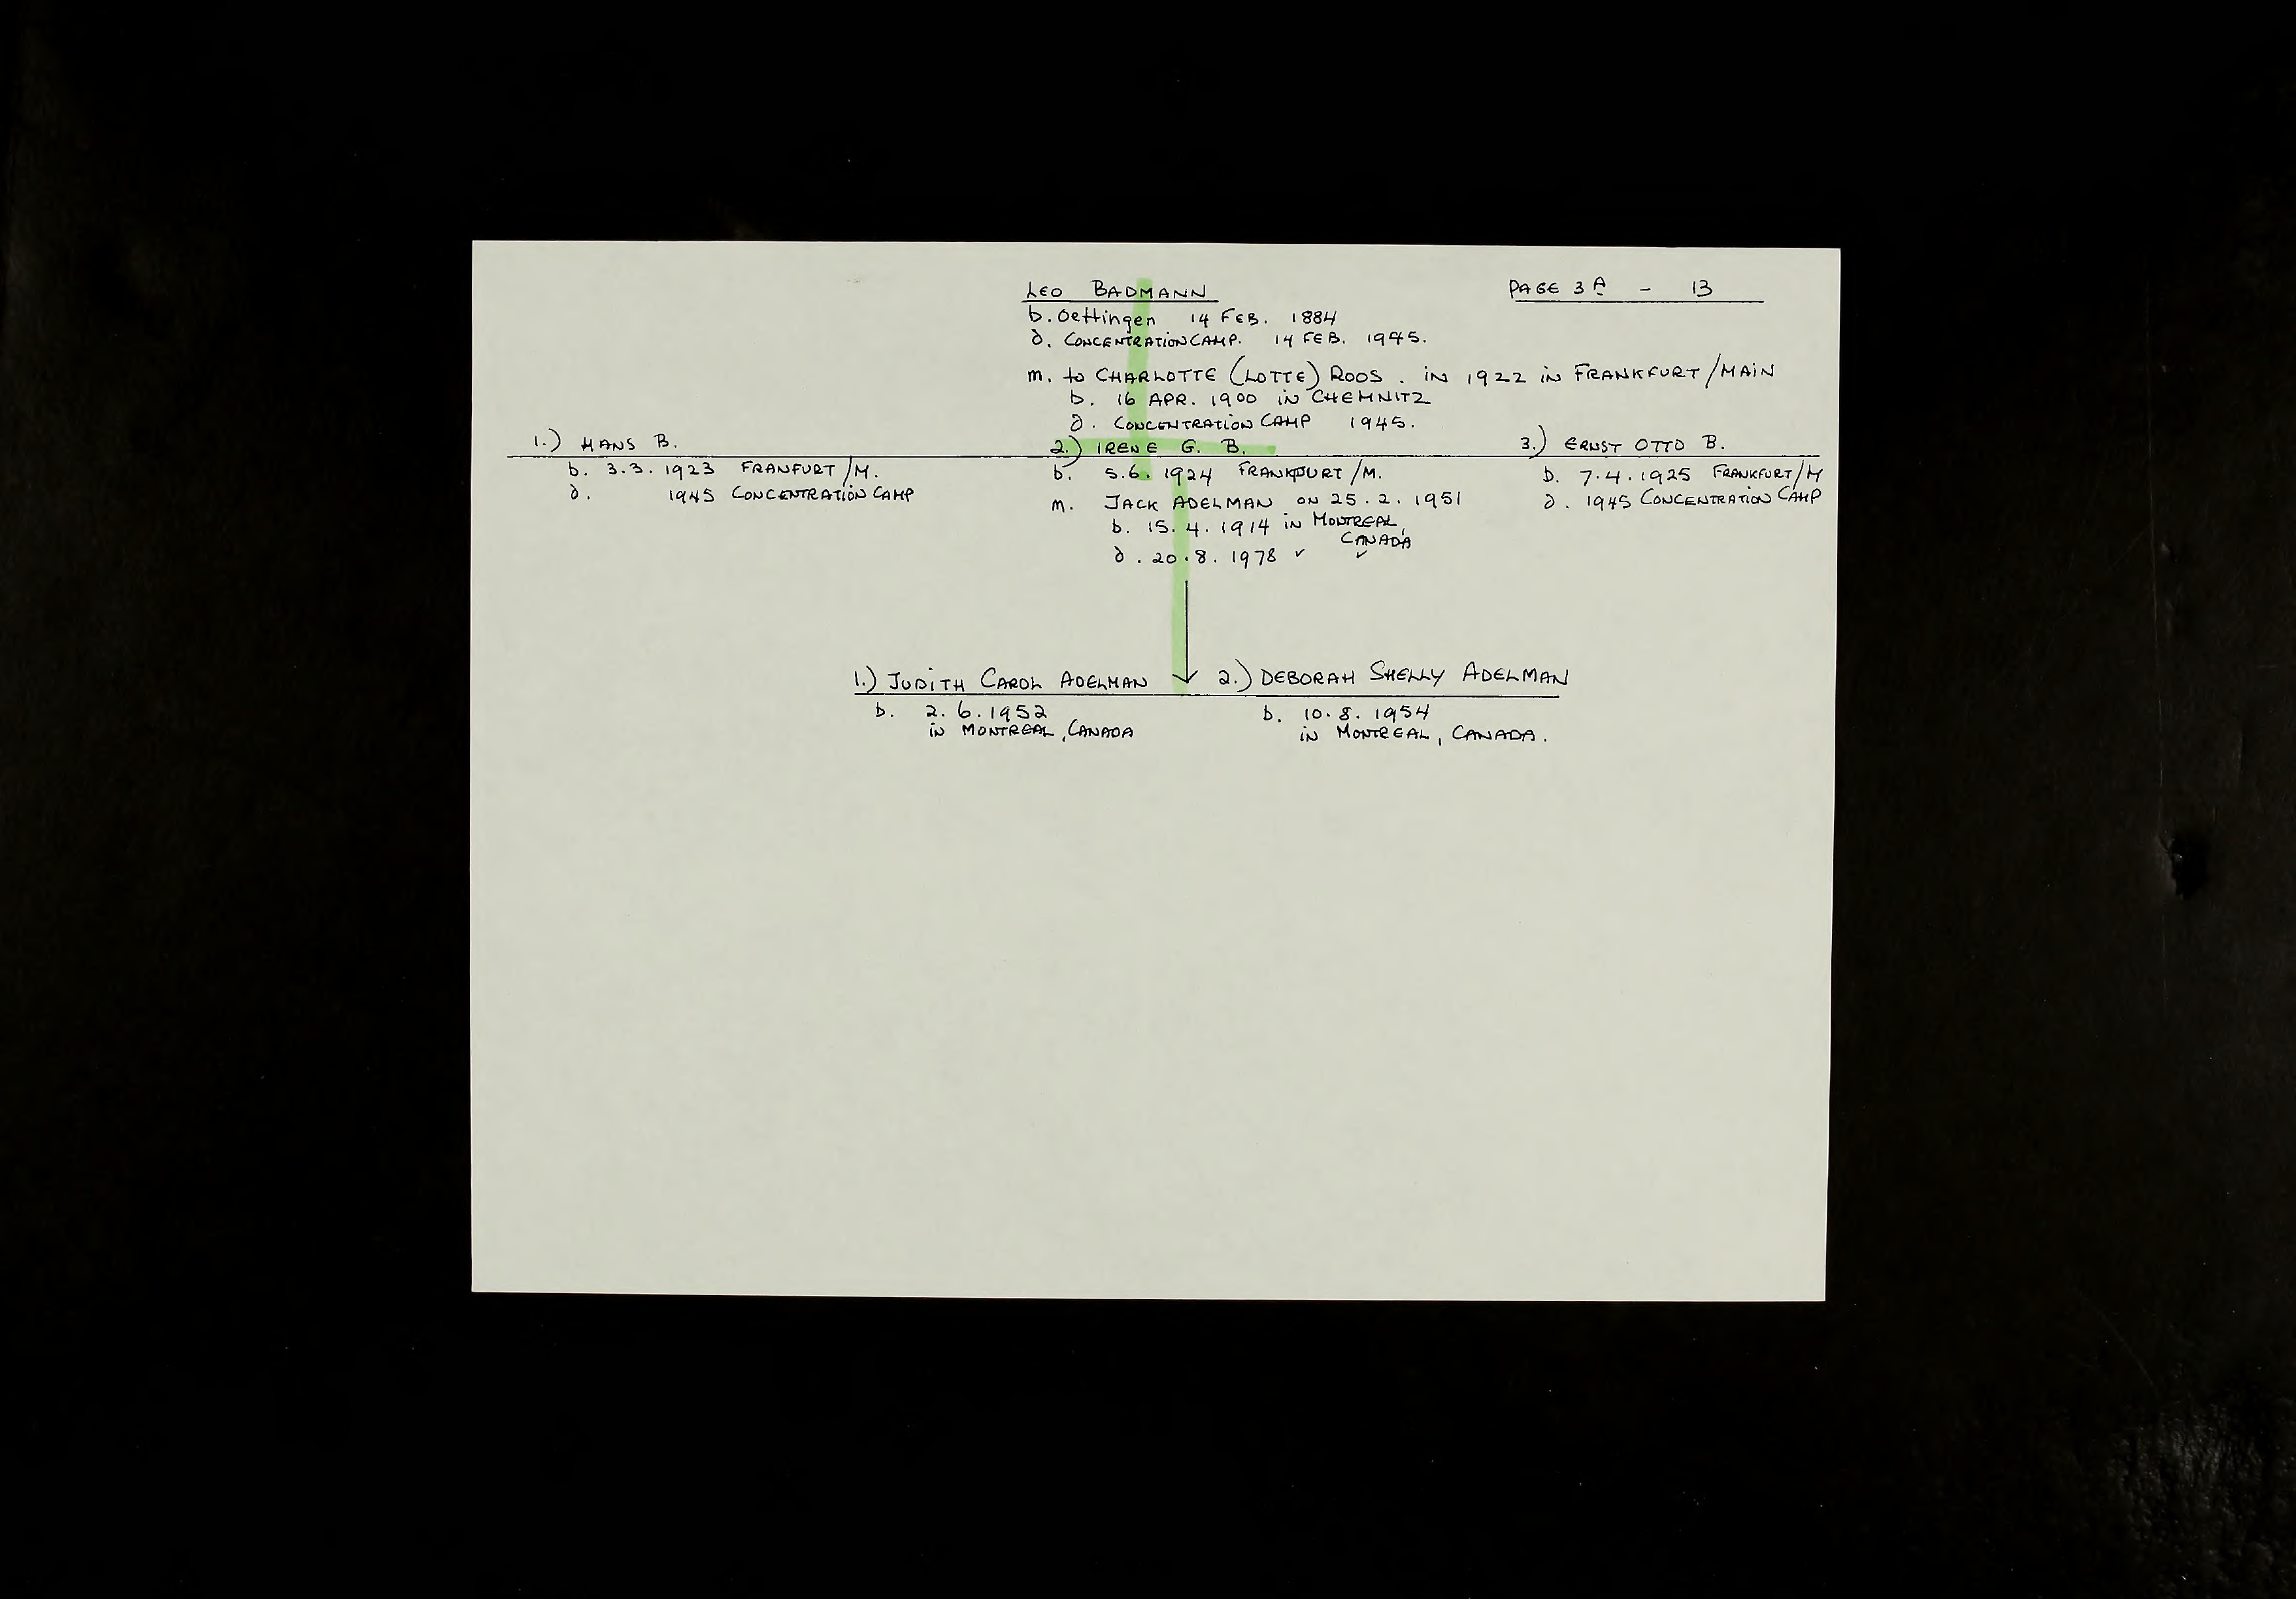 LEO BADMANN
PAGE 3A - 13
b. Oettingen 14 FEB. 1884
d. CONCENTRATION CAMP. 14 FEB. 1945.
m. to CHARLOTTE (LOTTE) ROOS. IN 1922 IN FRANKFURT/MAIN
b. 16 APR. 1900 IN CHEMNITZ
d. CONCENTRATION CAMP 1945.
1.) HANS B.
b. 3.3.1923 FRANFURT/M.
d. 1945 CONCENTRATION CAMP
2.) IRENE G. B.
b. 5.6.1924 FRANKFURT/M.
m. JACK ADELMAN ON 25.2.1951
b. 15.4.1914 IN MONTREAL,
CANADA
d. 20.8.1978 ✓ ✓
3.) ERNST OTTO B.
b. 7.4.1925 FRANKFURT/M
d. 1945 CONCENTRATION CAMP
1.) JUDITH CAROL ADELMAN
b. 2.6.1952
IN MONTREAL, CANADA
2.) DEBORAH SHELLY ADELMAN
b. 10.8.1954
IN MONTREAL, CANADA.